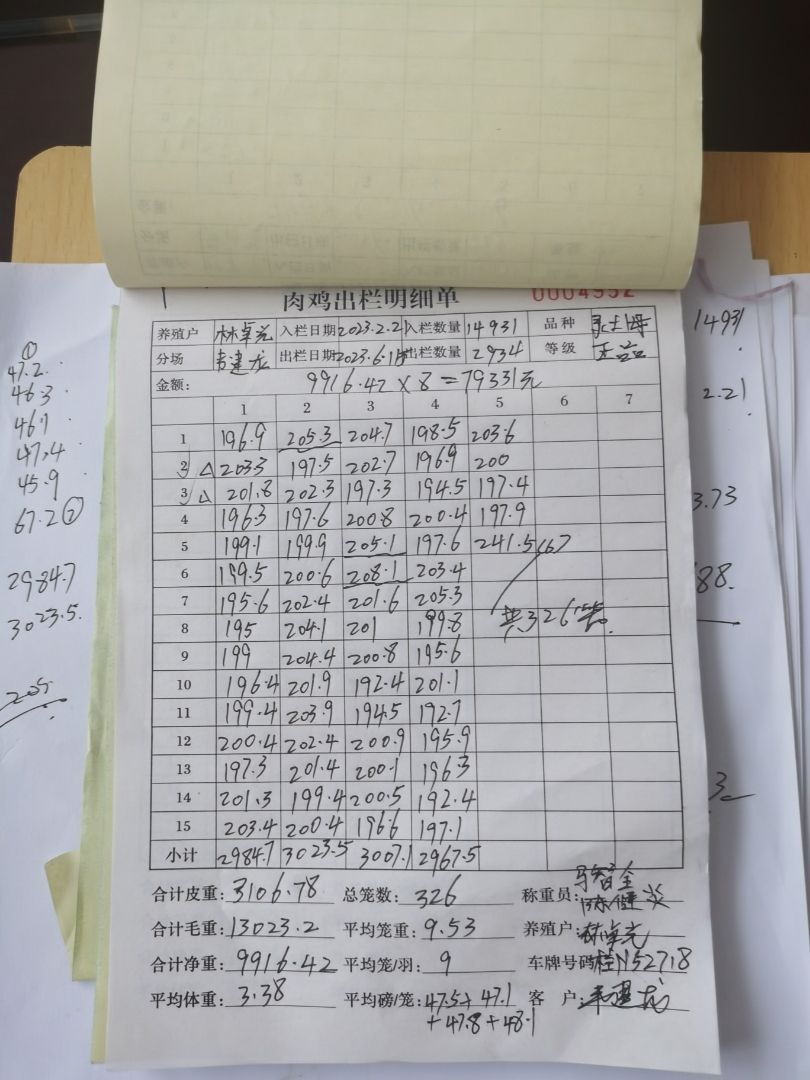 肉鸡出栏明细单 0004952
养殖户 林卓光 入栏日期 2023.2.21 入栏数量 14931 品种
分场 韦建龙 出栏日期 2023.6.1 出栏数量 2934 等级
金额: 9916.42 × 8 = 79331元
1 2 3 4 5 6 7
1 196.9 205.3 204.7 198.5 203.6
2 203.3 197.5 202.7 196.9 200
3 201.8 202.3 197.3 194.5 197.4
4 196.3 197.6 200.8 200.4 197.9
5 199.1 199.9 205.1 197.6 241.5 6/67
6 199.5 200.6 208.1 203.4
7 195.6 202.4 201.6 205.3
8 195 204.1 201 199.8 共326笼
9 199 204.4 200.8 195.6
10 196.4 201.9 192.4 201.1
11 199.4 203.9 194.5 192.7
12 200.4 202.4 200.9 195.9
13 197.3 201.4 200.1 196.3
14 201.3 199.4 200.5 192.4
15 203.4 200.4 196.6 197.1
小计 2984.7 3023.5 3007.1 2967.5
合计皮重: 3106.78 总笼数: 326 称重员:
合计毛重: 13023.2 平均笼重: 9.53 养殖户: 林卓光
合计净重: 9916.42 平均笼/羽: 9 车牌号码 桂N52718
平均体重: 3.38 平均磅/笼: 47.5+47.1 客 户: 韦建龙
+47.8+48.1
①
47.2
46.3
46.1
47.4
45.9
67.2②
2984.7
3023.5
205
14931
2.21
3.73
88.